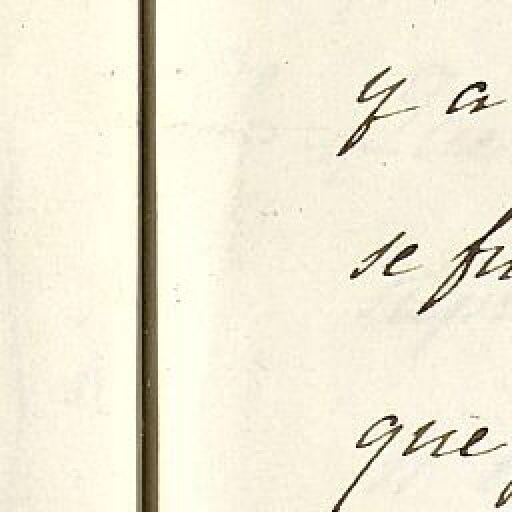 y a
se fu
que